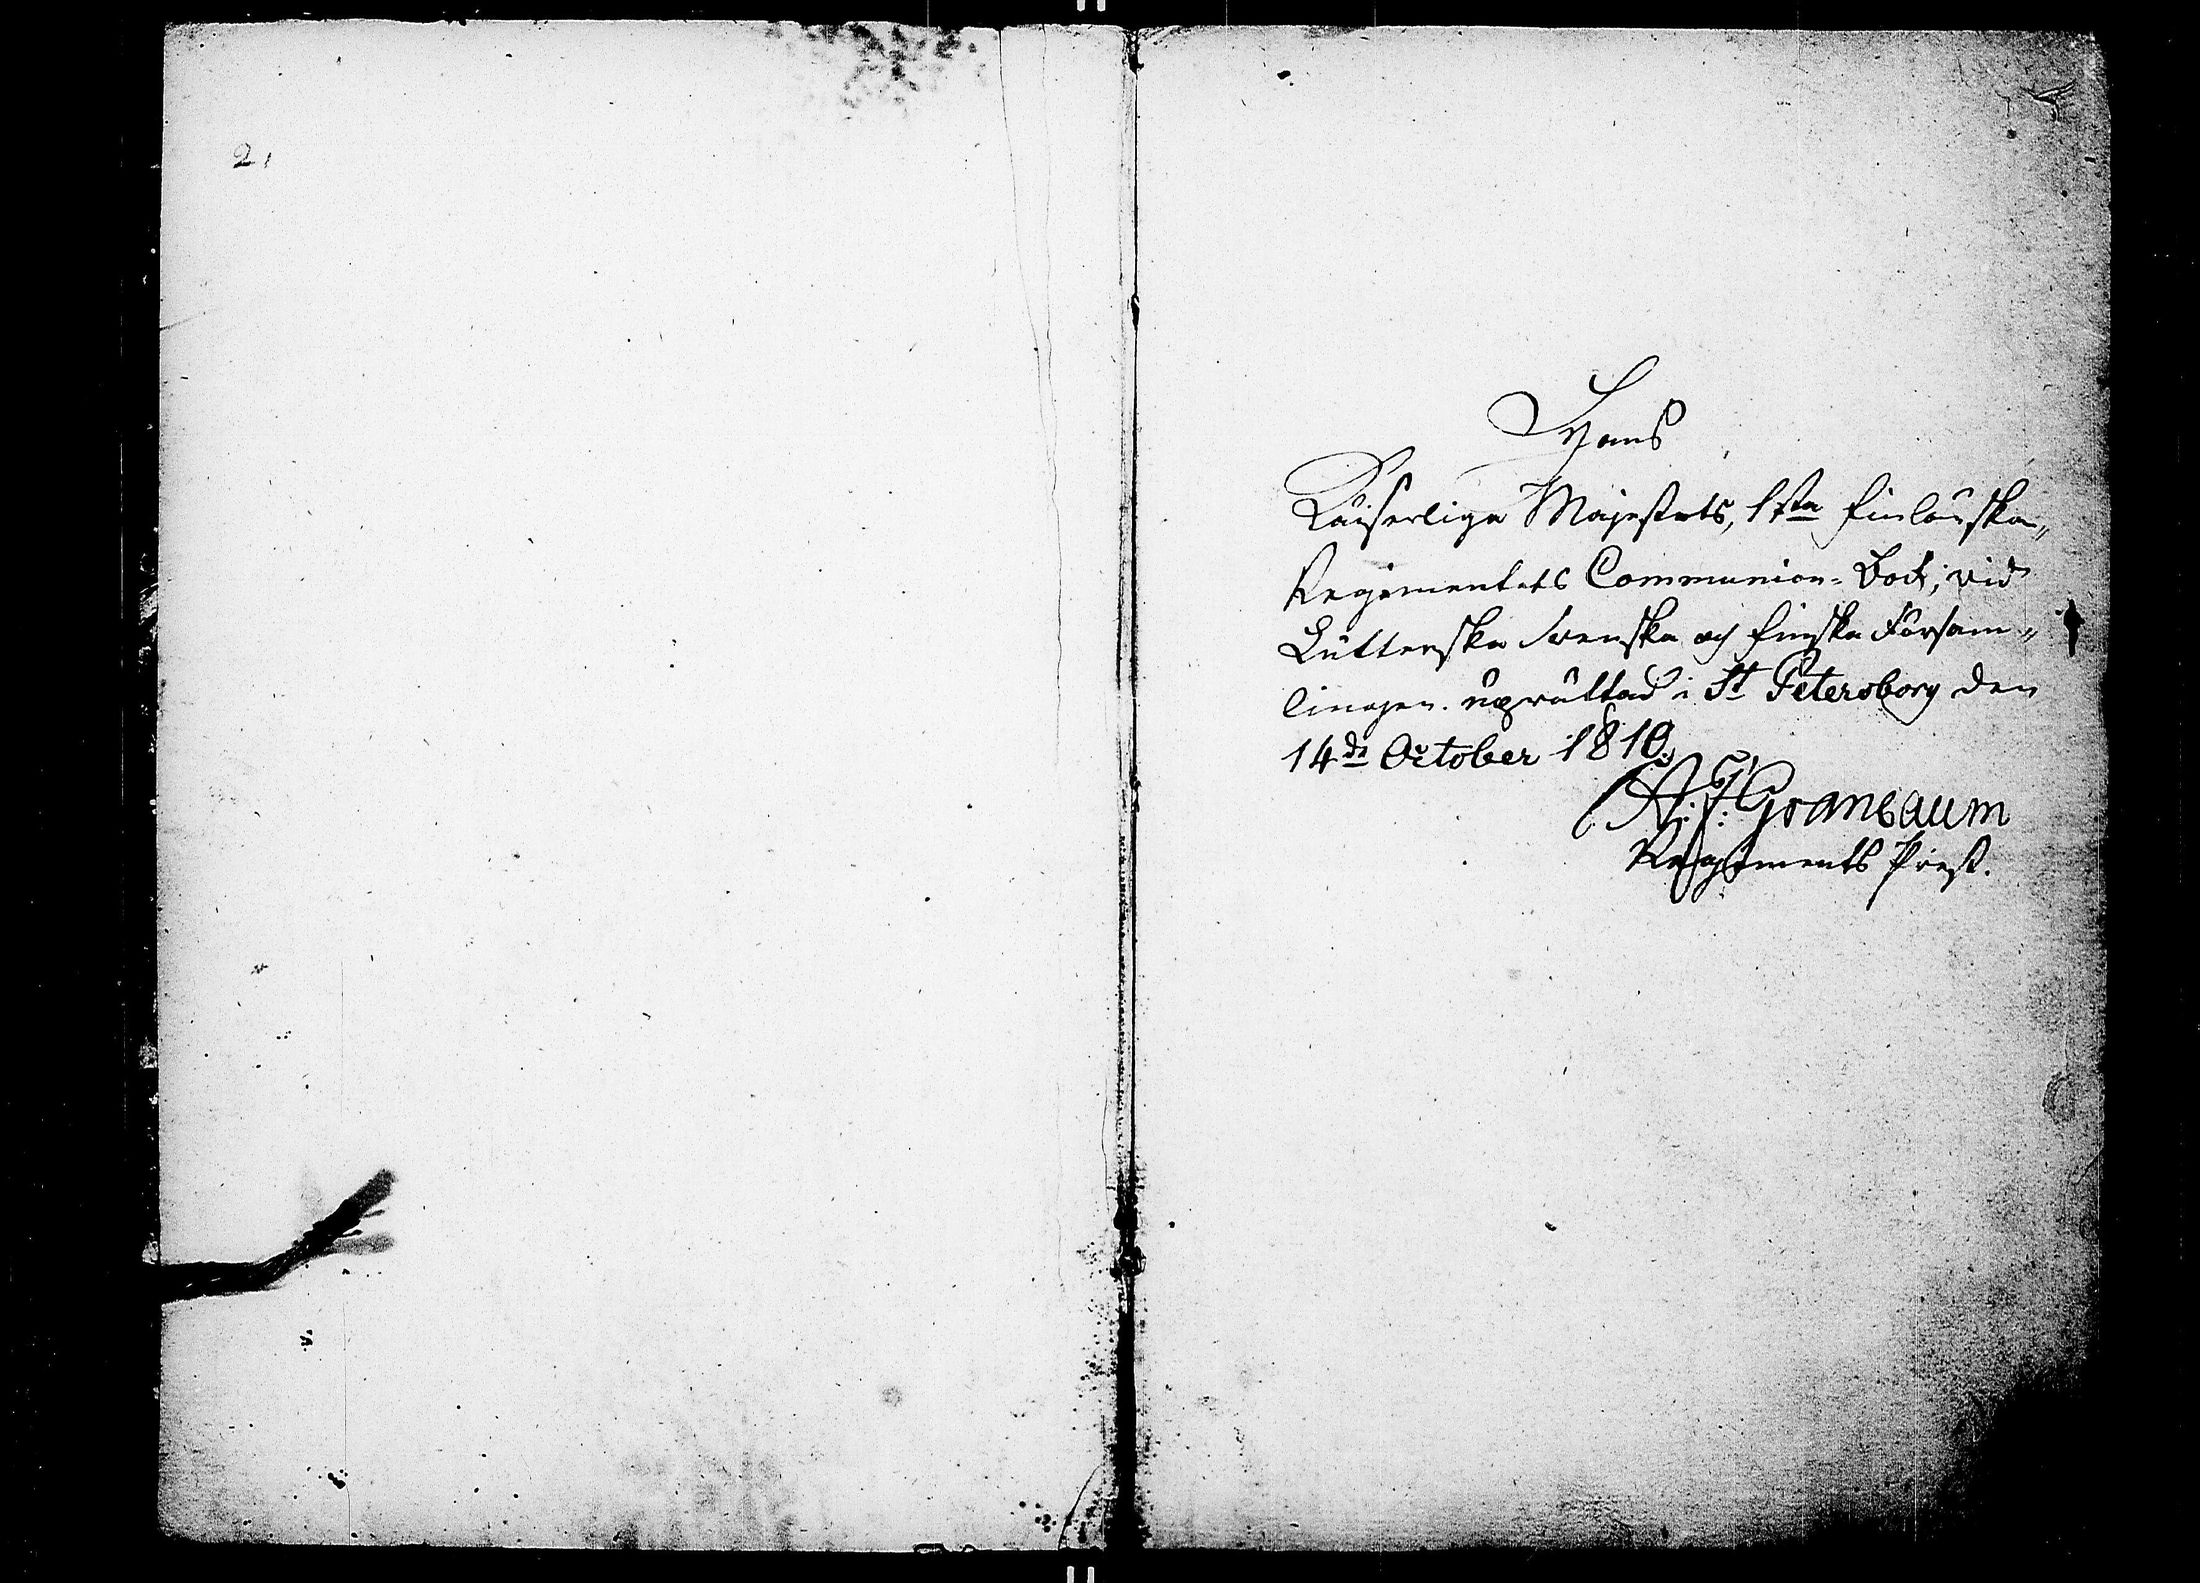 2,
Hans
Käiserliga Majestets, 1sta Finländska„
Regementets Communion-Bock, vid
Lütterska Svenska och Finska Försam„
lingen. uprättad i St Petersborg den
14de October 1810.
Granbaum
Regements Prest.